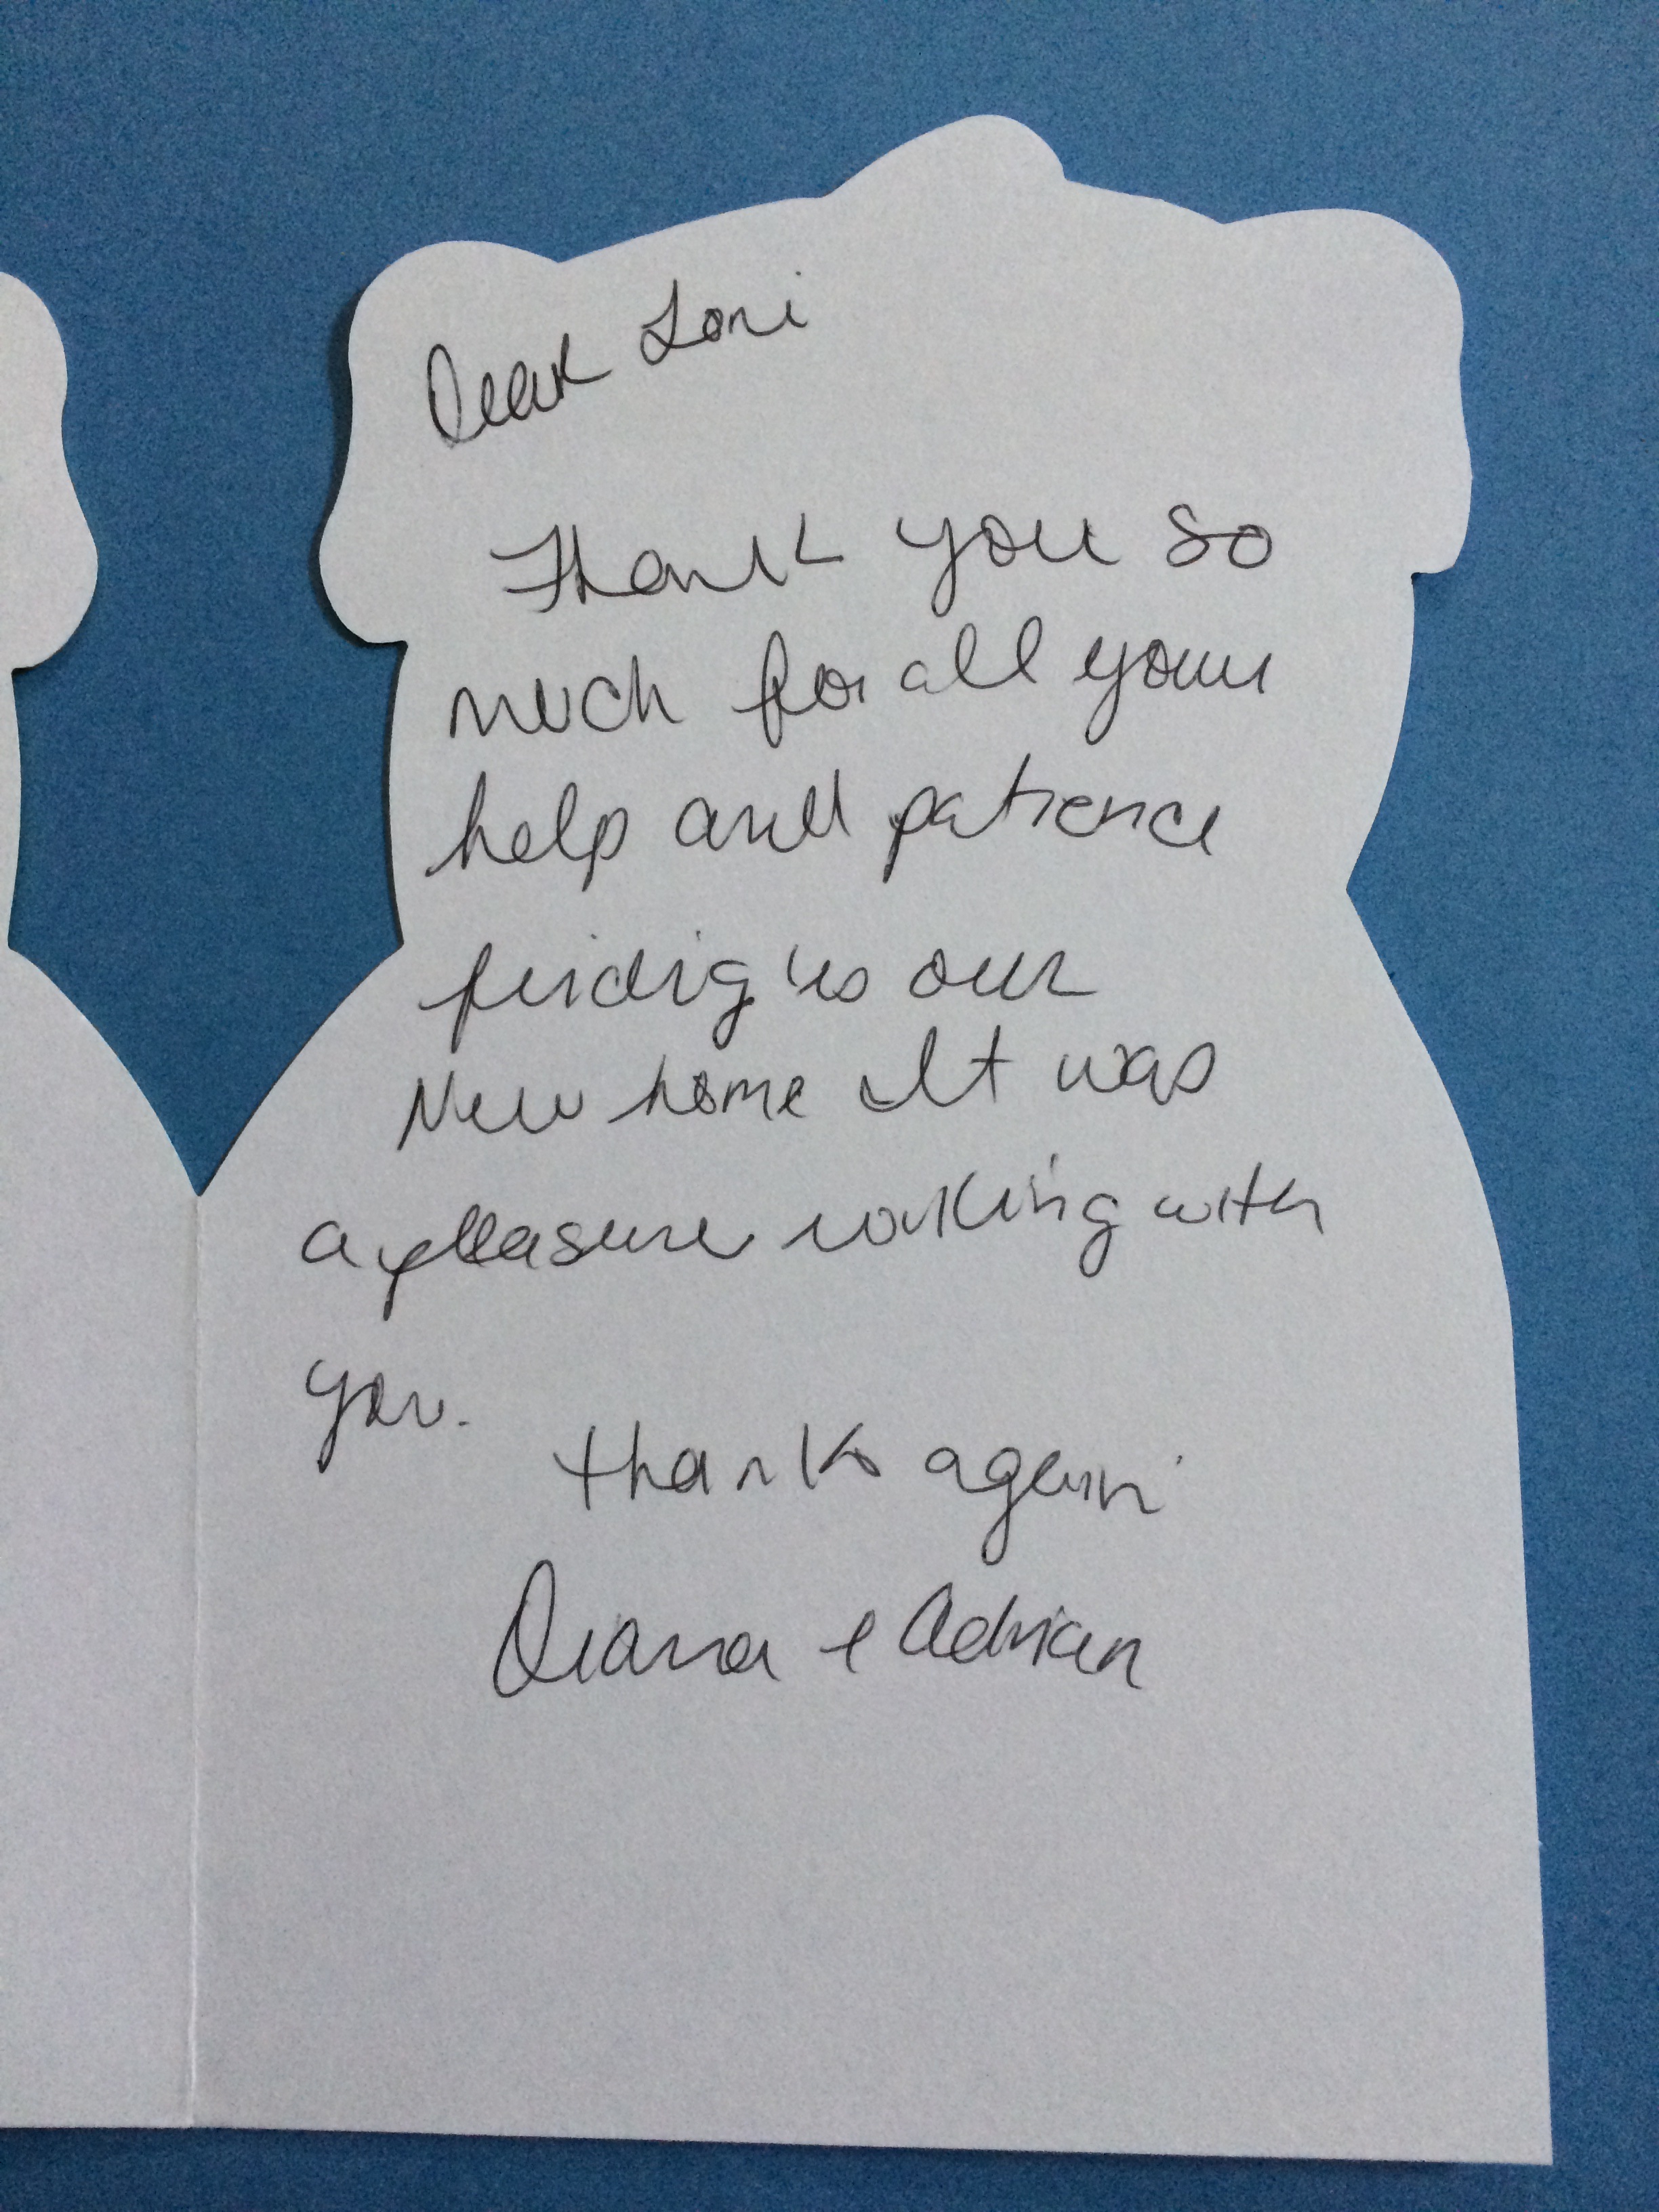 Dear Lori
Thank you so
much for all your
help and patience
finding us our
New home It was
a pleasure working with
you.
thanks again
Diana & Adrian